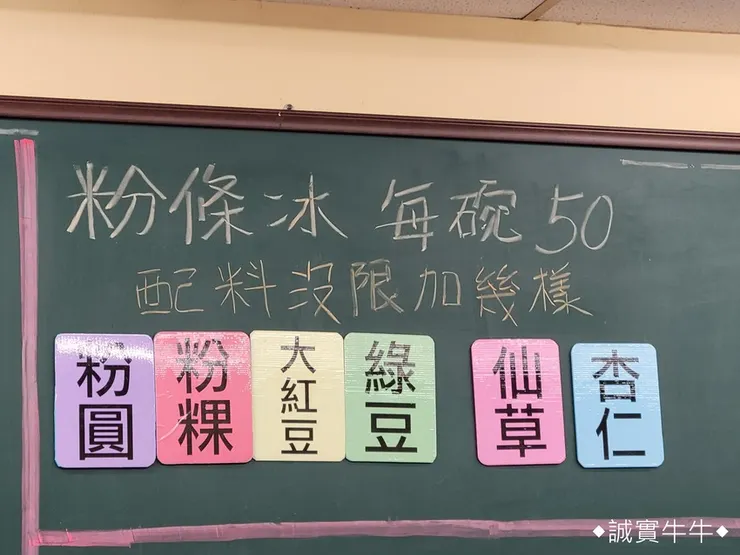 粉條冰 每碗50
配料沒限加幾樣
粉圓
粉粿
大紅豆
綠豆
仙草
杏仁
◆誠實牛牛◆